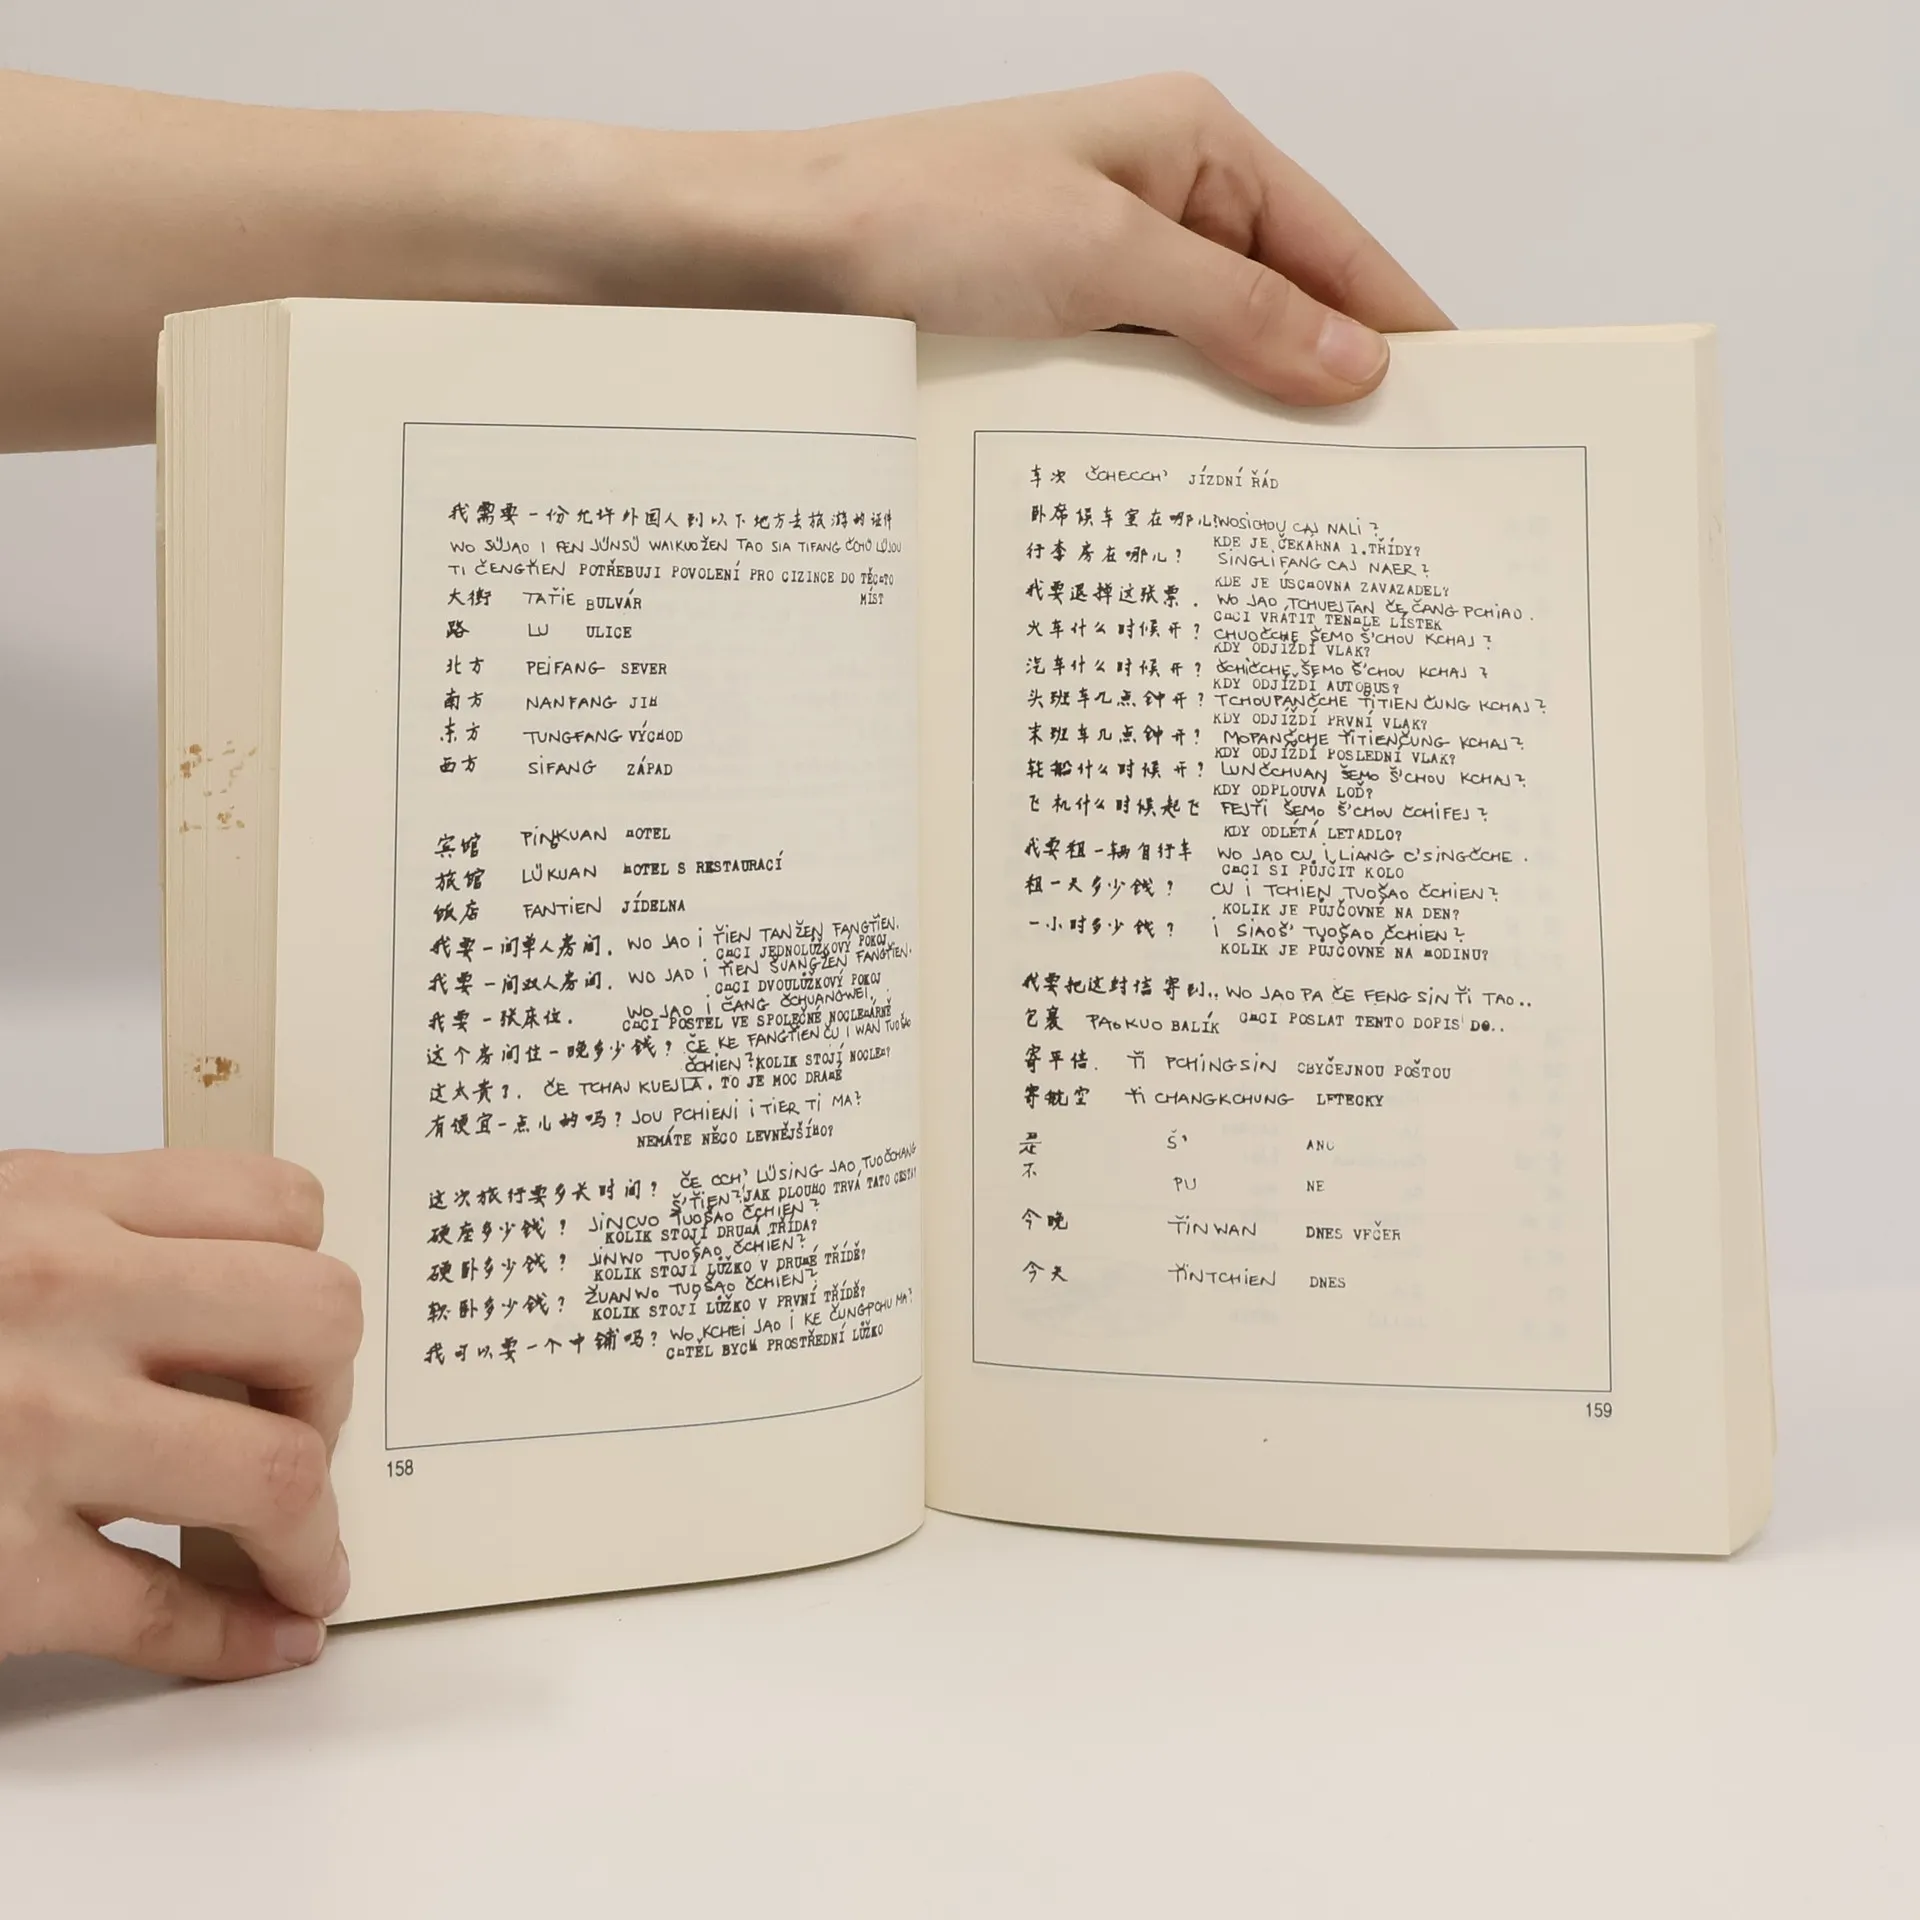 我需要一份允许外国人到以下地方去旅游的证件
WO SÜJAO I FEN JÜNSÜ WAIKUOŽEN TAO SIA TIFANG ČCHÜ LÜJOU
TI ČENGŤIEN POTŘEBUJI POVOLENÍ PRO CIZINCE DO TĚCHTO
MÍST
大街 TAŤIE BULVÁR
路 LU ULICE
北方 PEIFANG SEVER
南方 NANFANG JIH
东方 TUNGFANG VÝCHOD
西方 SIFANG ZÁPAD
宾馆 PINKUAN HOTEL
旅馆 LÜKUAN HOTEL S RESTAURACÍ
饭店 FANTIEN JÍDELNA
我要一间单人房间. WO JAO I ŤIEN TANŽEN FANGŤIEN.
CHCI JEDNOLŮŽKOVÝ POKOJ
我要一间双人房间. WO JAO I ŤIEN ŠUANGŽEN FANGŤIEN.
CHCI DVOULŮŽKOVÝ POKOJ
我要一张床位. WO JAO I ČANG ČCHUANGWEI.
CHCI POSTEL VE SPOLEČNÉ NOCLEHÁRNĚ
这个房间住一晚多少钱? ČE KE FANGŤIEN ČU I WAN TUOŠAO
ČCHIEN? KOLIK STOJÍ NOCLEH?
这太贵了. ČE TCHAJ KUEJLA. TO JE MOC DRAHÉ
有便宜一点儿的吗? JOU PCHIENI I TIER TI MA?
NEMÁTE NĚCO LEVNĚJŠÍHO?
这次旅行要多长时间? ČE CCH' LÜSING JAO TUOČCHANG
Š'ŤIEN? JAK DLOUHO TRVÁ TATO CESTA?
硬座多少钱? JINCUO TUOŠAO ČCHIEN?
KOLIK STOJÍ DRUHÁ TŘÍDA?
硬卧多少钱? JINWO TUOŠAO ČCHIEN?
KOLIK STOJÍ LŮŽKO V DRUHÉ TŘÍDĚ?
软卧多少钱? ŽUANWO TUOŠAO ČCHIEN?
KOLIK STOJÍ LŮŽKO V PRVNÍ TŘÍDĚ?
我可以要一个中铺吗? WO KCHEI JAO I KE ČUNGPCHU MA?
CHTĚL BYCH PROSTŘEDNÍ LŮŽKO
158
车次 ČCHECCH' JÍZDNÍ ŘÁD
卧席候车室在哪儿? WOSICHOU CAJ NALI?
KDE JE ČEKÁRNA 1.TŘÍDY?
行李房在哪儿? SINGLIFANG CAJ NAER?
KDE JE ÚSCHOVNA ZAVAZADEL?
我要退掉这张票. WO JAO TCHUEJTAN ČE ČANG PCHIAO.
CHCI VRÁTIT TENHLE LÍSTEK
火车什么时候开? CHUOČCHE ŠEMO Š'CHOU KCHAJ?
KDY ODJÍŽDÍ VLAK?
汽车什么时候开? ČCHIČCHE ŠEMO Š'CHOU KCHAJ?
KDY ODJÍŽDÍ AUTOBUS?
头班车几点钟开? TCHOUPANČCHE ŤITIEN ČUNG KCHAJ?
KDY ODJÍŽDÍ PRVNÍ VLAK?
末班车几点钟开? MOPANČCHE ŤITIENČUNG KCHAJ?
KDY ODJÍŽDÍ POSLEDNÍ VLAK?
轮船什么时候开? LUNČCHUAN ŠEMO Š'CHOU KCHAJ?
KDY ODPLOUVÁ LOĎ?
飞机什么时候起飞 FEJŤI ŠEMO Š'CHOU ČCHIFEJ?
KDY ODLÉTÁ LETADLO?
我要租一辆自行车 WO JAO CU I LIANG C'SINGČCHE.
CHCI SI PŮJČIT KOLO
租一天多少钱? CU I TCHIEN TUOŠAO ČCHIEN?
KOLIK JE PŮJČOVNÉ NA DEN?
一小时多少钱? I SIAOŠ' TUOŠAO ČCHIEN?
KOLIK JE PŮJČOVNÉ NA HODINU?
我要把这封信寄到.. WO JAO PA ČE FENG SIN ŤI TAO..
包裹 PAOKUO BALÍK CHCI POSLAT TENTO DOPIS DO..
寄平信. ŤI PCHINGSIN OBYČEJNOU POŠTOU
寄航空 ŤI CHANGKCHUNG LETECKY
是 Š' ANO
不 PU NE
今晚 ŤINWAN DNES VEČER
今天 ŤINTCHIEN DNES
159